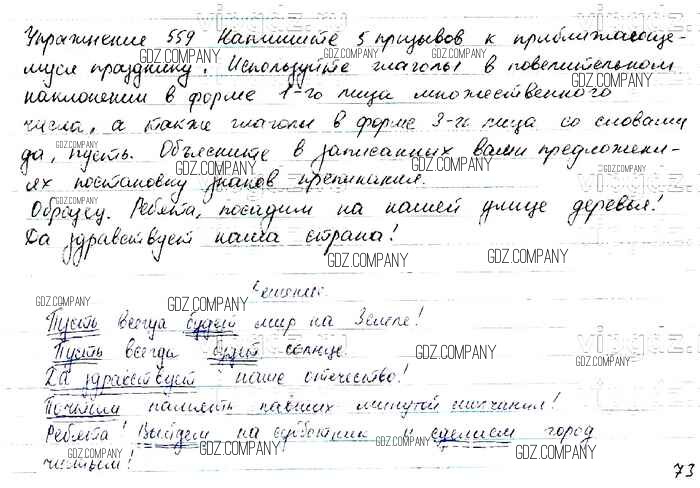 Упражнение 559 Напишите 5 призывов к приближающе-
муся празднику. Используйте глаголы в повелительном
наклонении в форме 1-го лица множественного
числа, а также глаголы в форме 3-го лица со словами
да, пусть. Объясните в записанных вами предложени-
ях постановку знаков препинания.
Образец. Ребята, посадим на нашей улице деревья!
Да здравствует наша страна!
Решение.
Пусть всегда будет мир на Земле!
Пусть всегда будет солнце.
Да здравствует наше отечество!
Почтим память павших минутой молчания!
Ребята! Выйдем на субботник и сделаем город
чистым!
73
GDZ.COMPANY